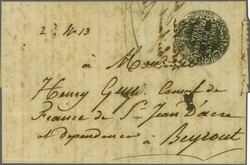 2. N 13
à Monsieur
Henry Guys, Consul de
France de St Jean D'acre
et dépendences à Beyrout